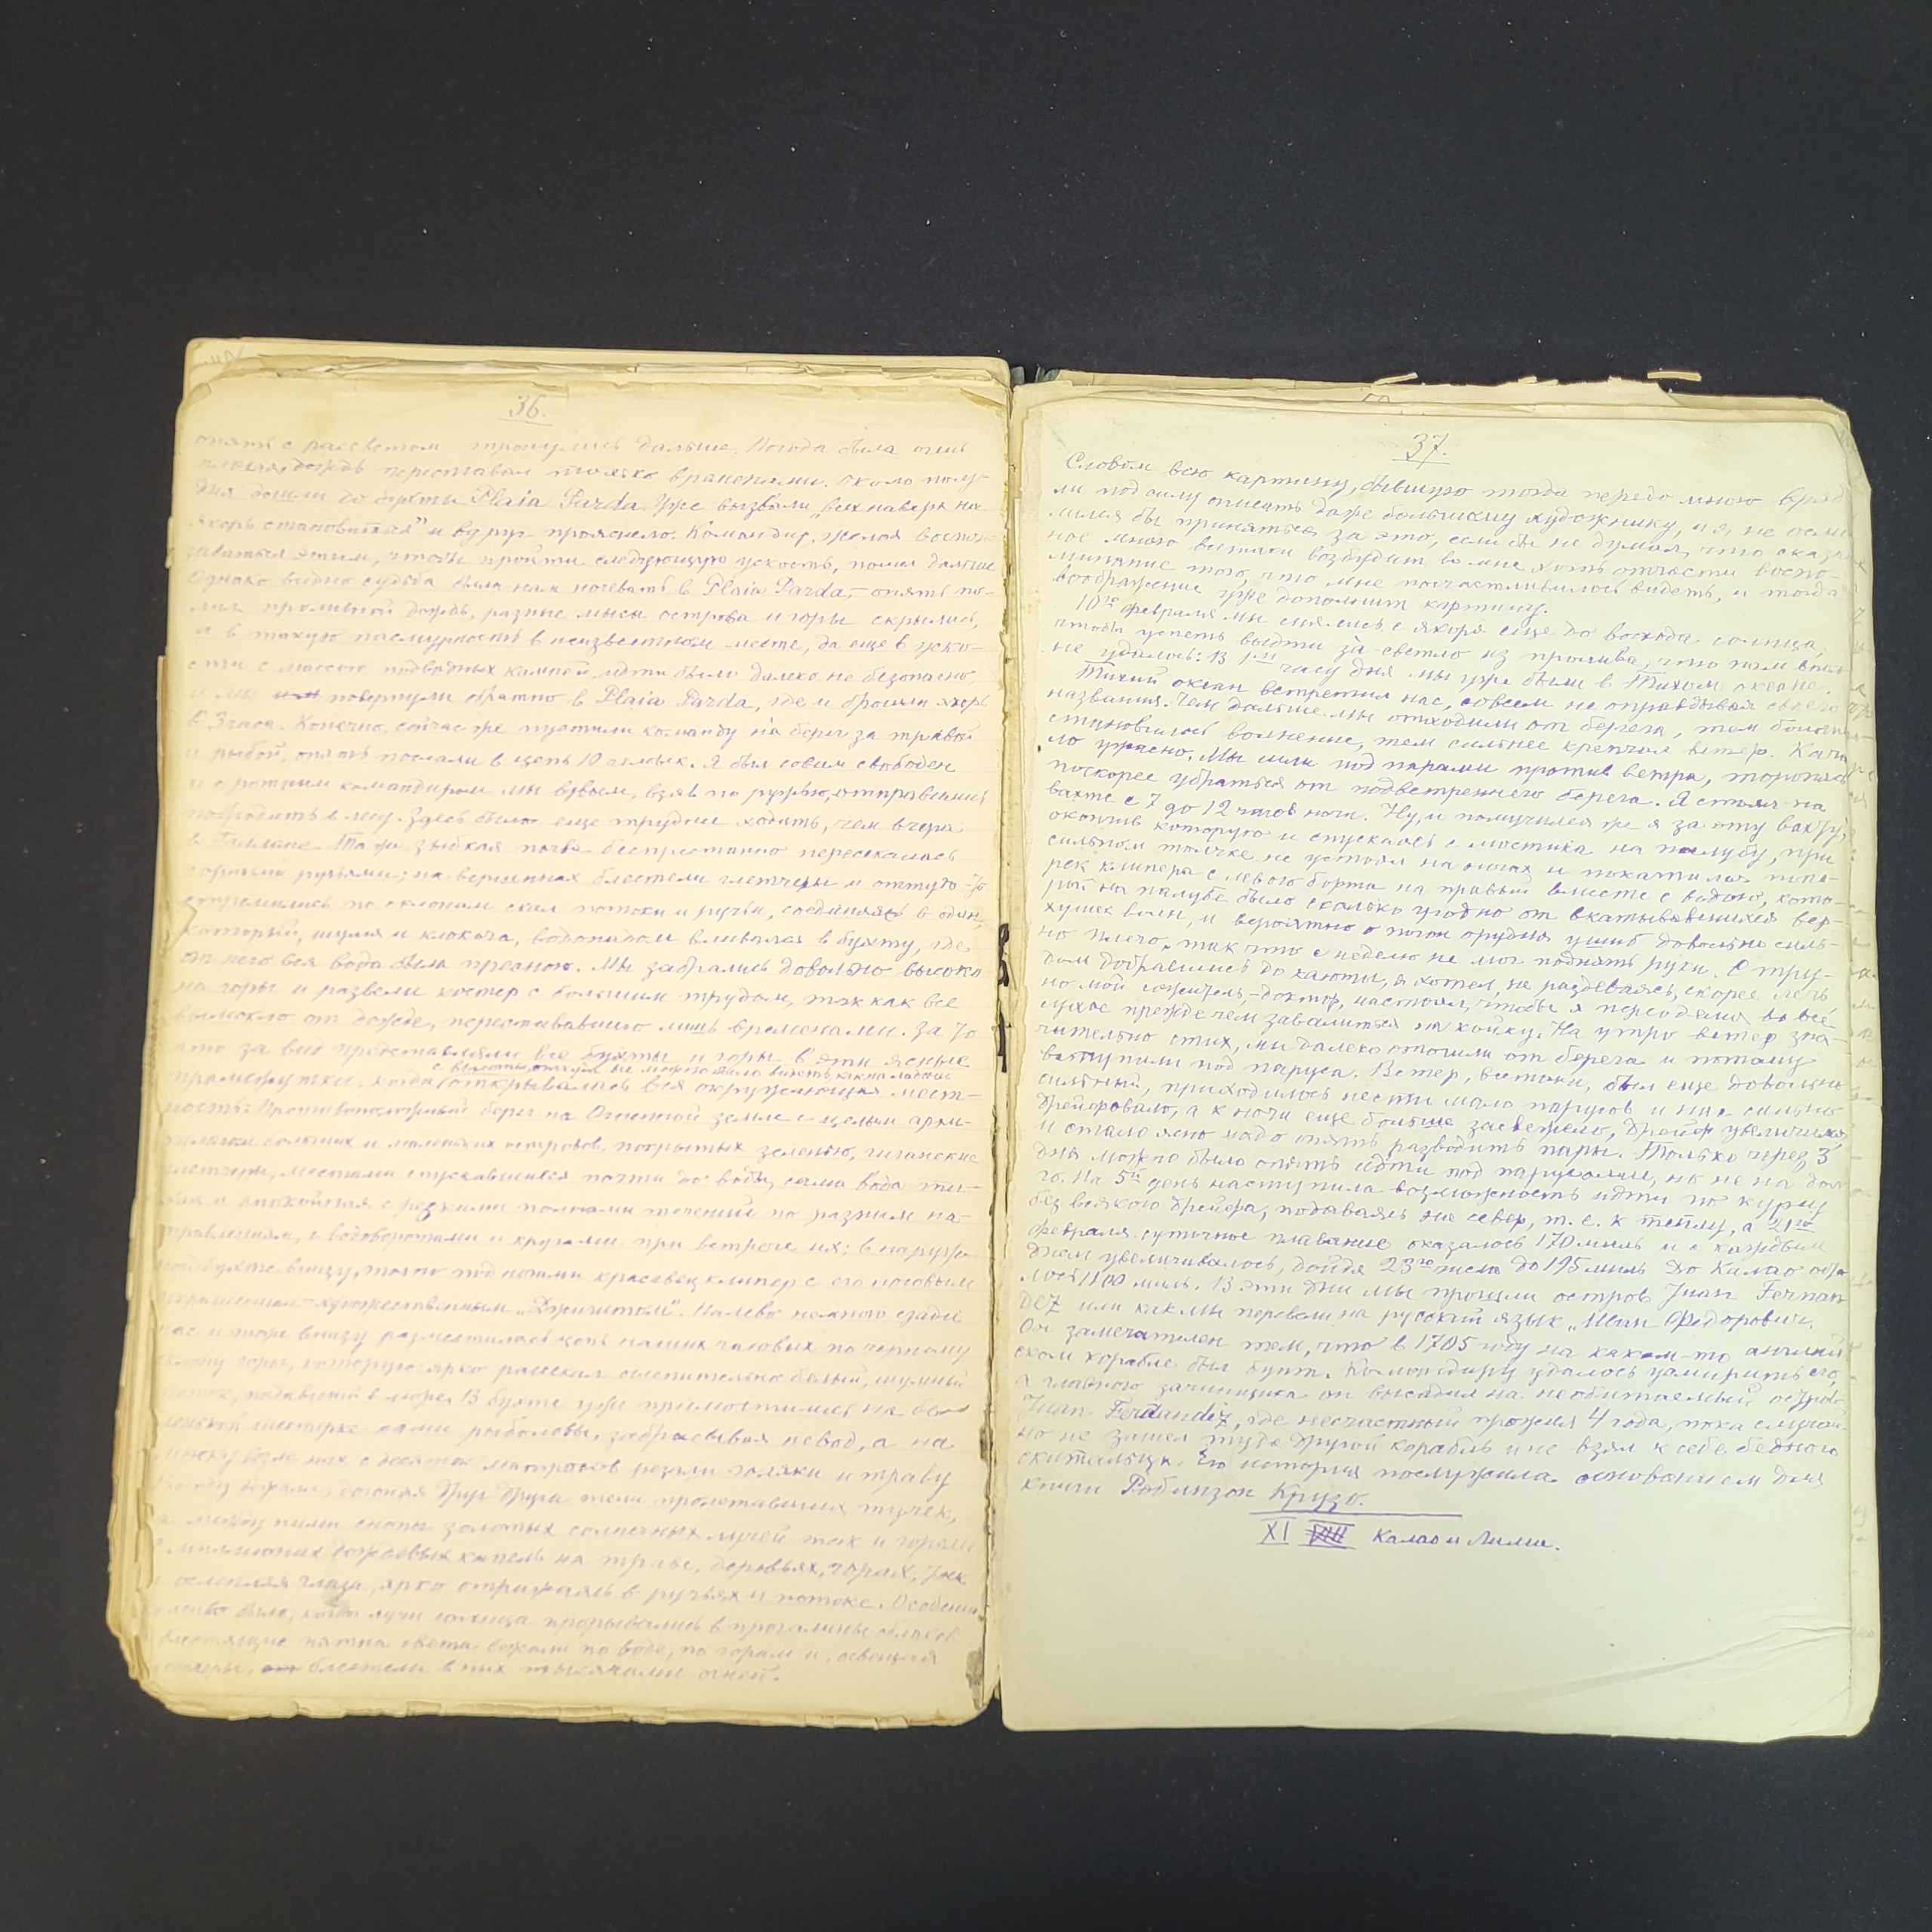 36.
опять с рассветом тронулись дальше. Погода была очень
дождь переставал только временами. Около полу-
дня дошли до бухты Plaia Parda. Уже вызвали „всех наверх на
якорь становиться" и вдруг прояснело. Командир, желая восполь-
зоваться этим, чтобы пройти следующую узкость, пошел дальше
Однако видно судьба была нам ночевать в Plaia Parda, – опять по-
лил проливной дождь, разные мысы острова и горы скрылись,
а в такую пасмурность в неизвестном месте, да еще в узко-
сти с массою подводных камней идти было далеко не безопасно
и мы повернули обратно в Plaia Parda, где и бросили якорь
в 3 часа. Конечно, сейчас же пустили команду на берег за травой
и рыбой, опять послали в цепь 10 человек. Я был совсем свободен
и с ротным командиром мы вдвоем, взяв по ружью, отправились
побродить в лесу. Здесь было еще труднее ходить, чем вчера
в Та же зыбкая почва беспрестанно пересекалась
горными ручьями; на вершинах блестели глетчеры и оттуда-то
стремились по склонам скал потоки и ручьи, соединяясь в один,
который, шумя и клокоча, водопадом вливался в бухту, где
от него вся вода была пресною. Мы забрались довольно высоко
на горы и развели костер с большим трудом, так как все
вымокло от дождя, перестававшего лишь временами. За то
что за вид представляли все бухты и горы в эти ясные
с высоты, откуда все можно было видеть, как на ладони
промежутки, когда открывалась вся окружающая мест-
ность: Противоположный берег на Огненной земле с целым архи-
пелагом больших и маленьких островов, покрытых зеленью, гигантские
глетчеры, местами спускавшиеся почти до воды, сама вода ти-
хая и спокойная с резкими полосами течений по разным на-
правлениям, с водоворотами и кругами при встрече их; в
бухте внизу, точно под ногами красавец клипер с его носовым
украшением – художественным „Джигитом". Налево немного сзади
нас и тоже внизу разместилась цепь наших часовых по черному
склону горы, которую ярко рассекал ослепительно белый, шумный
поток, падавший в море. В бухте уже примостились на
шестерке наши рыболовы, забрасывая невод, а на
возле них с десяток матросов резали голяки и траву
бежали, догоняя друг друга тени пролетавших тучек,
а между ними снопы золотых солнечных лучей так и горели
в миллионах дождевых капель на траве, деревьях, горах, так
и ослепляя глаза, ярко отражаясь в ручьях и потоке. Особенно
было, когда лучи солнца прорывались в прогалины облаков
блестящие пятна света бежали по воде, по горам и, освещая
глетчеры, блестели в них тысячами огней.
37.
Словом всю картину, бывшую тогда передо мною вряд
ли под силу описать даже большому художнику, и я, не осме-
лился бы приняться за это, если бы не думал, что сказан-
ное мною всетаки возбудит во мне хоть отчасти воспо-
минание того, что мне посчастливилось видеть, и тогда
воображение уже дополнит картину.
10го февраля мы снялись с якоря еще до восхода солнца,
чтобы успеть выдти за-светло из пролива, что нам вполн
не удалось: В 1ом часу дня мы уже были в Тихом океане.
Тихий океан встретил нас, совсем не оправдывая своего
названия. Чем дальше мы отходили от берега, тем больше
становилось волнение, тем сильнее крепчал ветер. Кача
ло ужасно. Мы шли под парами против ветра, торопясь
поскорее убраться от подветренного берега. Я стоял на
вахте с 7 до 12 часов ночи. Ну, и помучился же я за эту вахту,
окончив которую и спускаясь с мостика на палубу, при
сильном толчке не устоял на ногах и покатился попе-
рек клипера с левого борта на правый вместе с водою, кото-
рой на палубе было сколько угодно от вкатывавшихся вер-
хушек волн, и вероятно о погон орудия ушиб довольно силь-
но плечо, так что с неделю не мог поднять руки. С тру-
дом добравшись до каюты, я хотел, не раздеваясь, скорее лечь
но мой сожитель, – доктор, настоял, чтобы я переоделся во всё
сухое прежде чем завалиться на койку. На утро ветер зна-
чительно стих, мы далеко отошли от берега и потому
вступили под паруса. Ветер, всетаки, был еще довольно
сильный, приходилось нести мало парусов и нас сильно
дрейфовало, а к ночи еще больше засвежело, дрейф увеличился
и стало ясно надо опять разводить пары. Только через 3
дня можно было опять идти под парусами, но не на дол
го. На 5й день наступила возможность идти по курсу
без всякого дрейфа, подаваясь на север, т. е. к теплу, а 21го
февраля суточное плавание оказалось 170 миль и с каждым
днем увеличивалось, дойдя 23го числа до 195 миль. До Калао оста
лось 1100 миль. В эти дни мы прошли остров Juan Fernan
dez или как мы перевели на русский язык „Иван Федорович.
Он замечателен тем, что в 1705 году на каком-то англий
ском корабле был бунт. Командиру удалось усмирить его,
а главного зачинщика он высадил на необитаемый остров
Juan Ferdandez, где несчастный прожил 4 года, пока случай-
но не зашел туда другой корабль и не взял к себе бедного
скитальца. Его история послужила основанием для
книги Робинзон Крузо.
XI Калао и Лима.